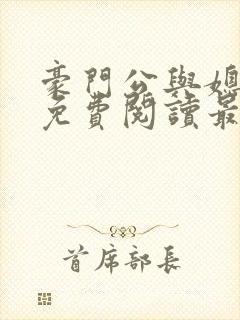 豪門公與媳
免費閱讀最
首席部長